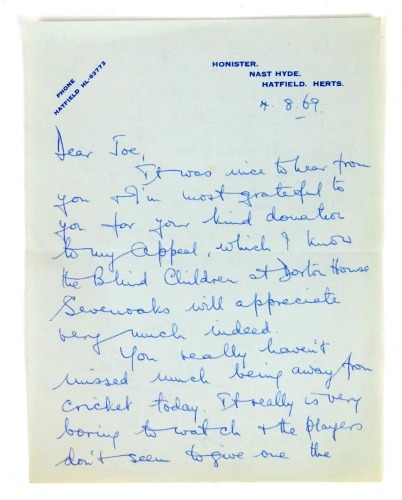 PHONE
HATFIELD HL-62773
HONISTER.
NAST HYDE.
HATFIELD. HERTS.
4. 8. 69.
Dear Joe,
It was nice to hear from
you & I'm most grateful to
you for your kind donation
to my Appeal, which I know
the Blind Children at Dorton House
Sevenoaks will appreciate
very much indeed.
You really haven't
missed much being away from
cricket today. It really is very
boring to watch & the players
don't seem to give one the